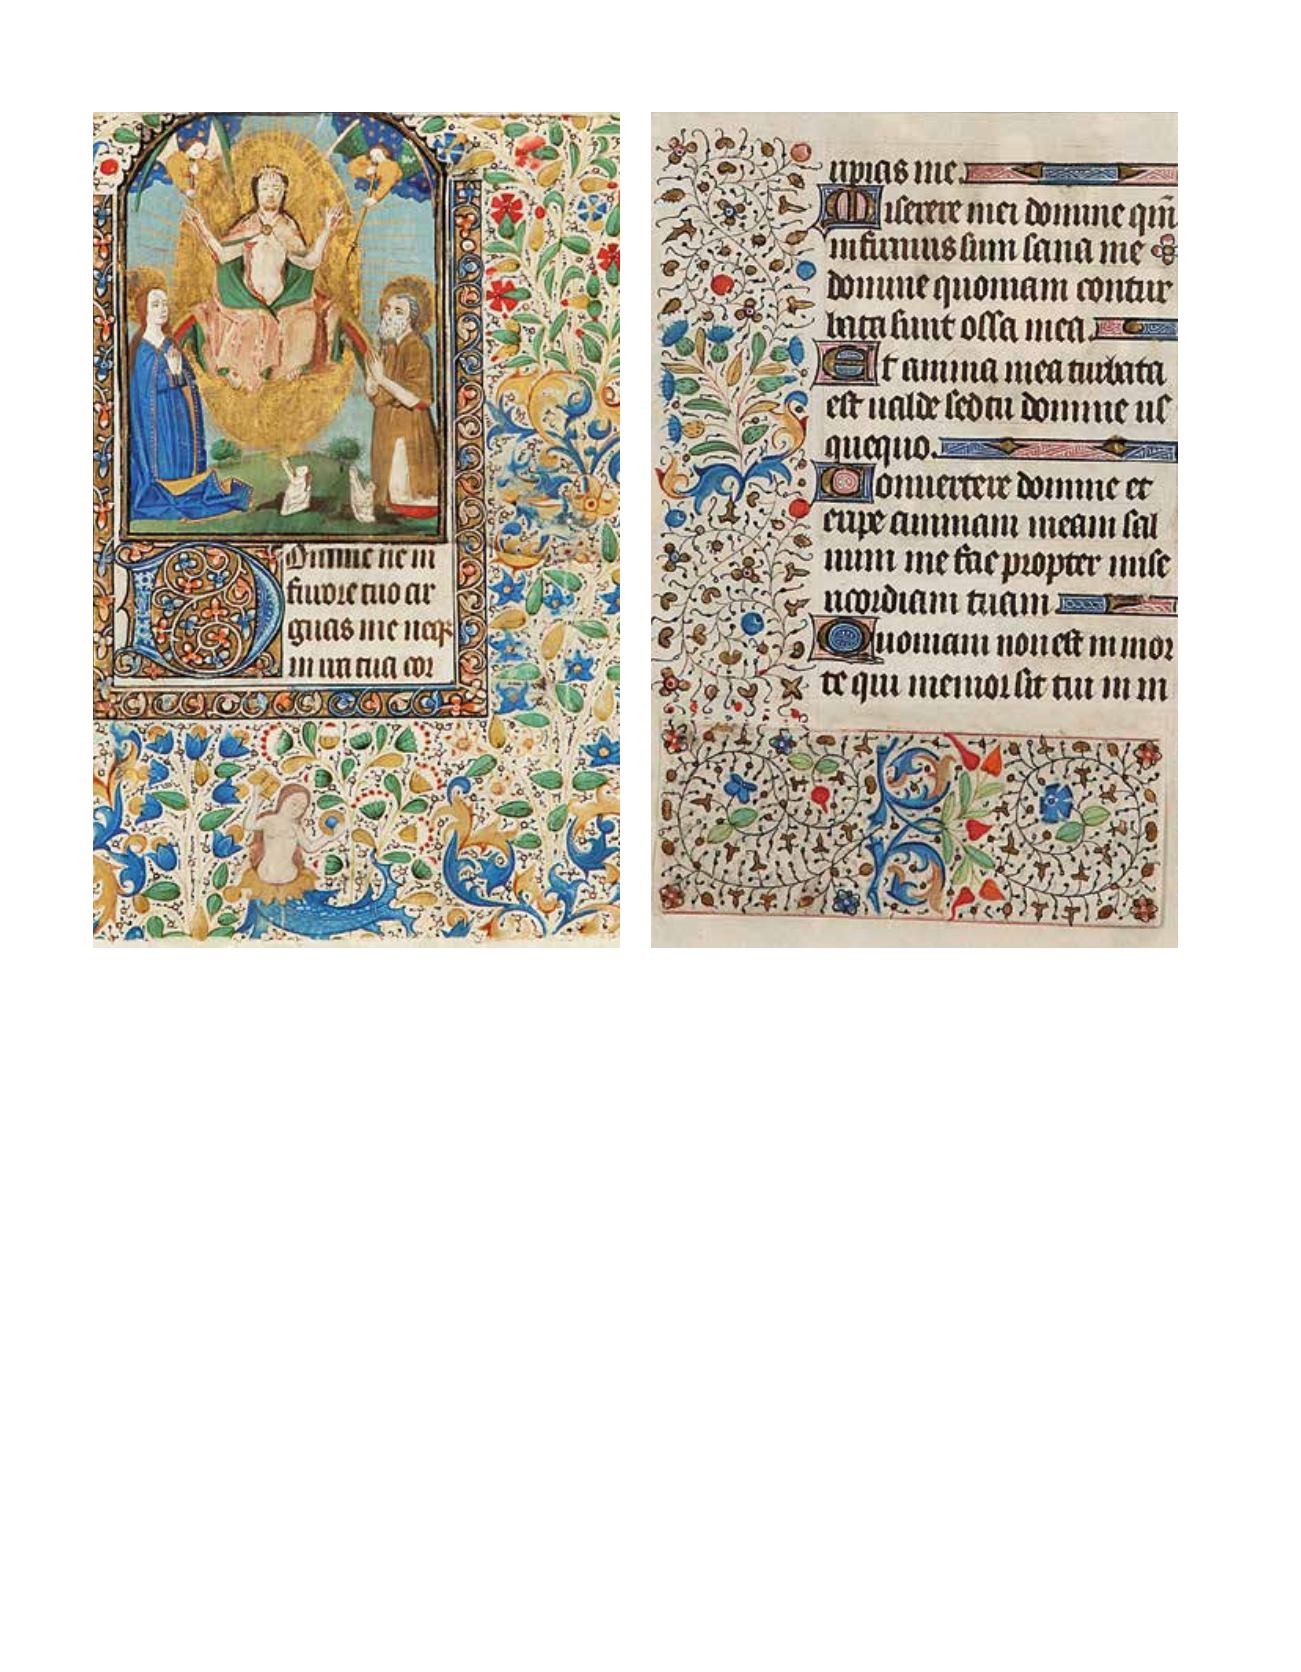 Domine ne in
furore tuo ar
guas me neqꝫ
in ira tua cor
ripias me.
Miserere mei domine qm̄
infirmus sum sana me
domine quoniam contur
bata sunt ossa mea.
Et anima mea turbata
est ualde sed tu domine us
quequo.
Conuertere domine et
eripe animam meam sal
uum me fac propter mise
ricordiam tuam
Quoniam non est in mor
te qui memor sit tui in in